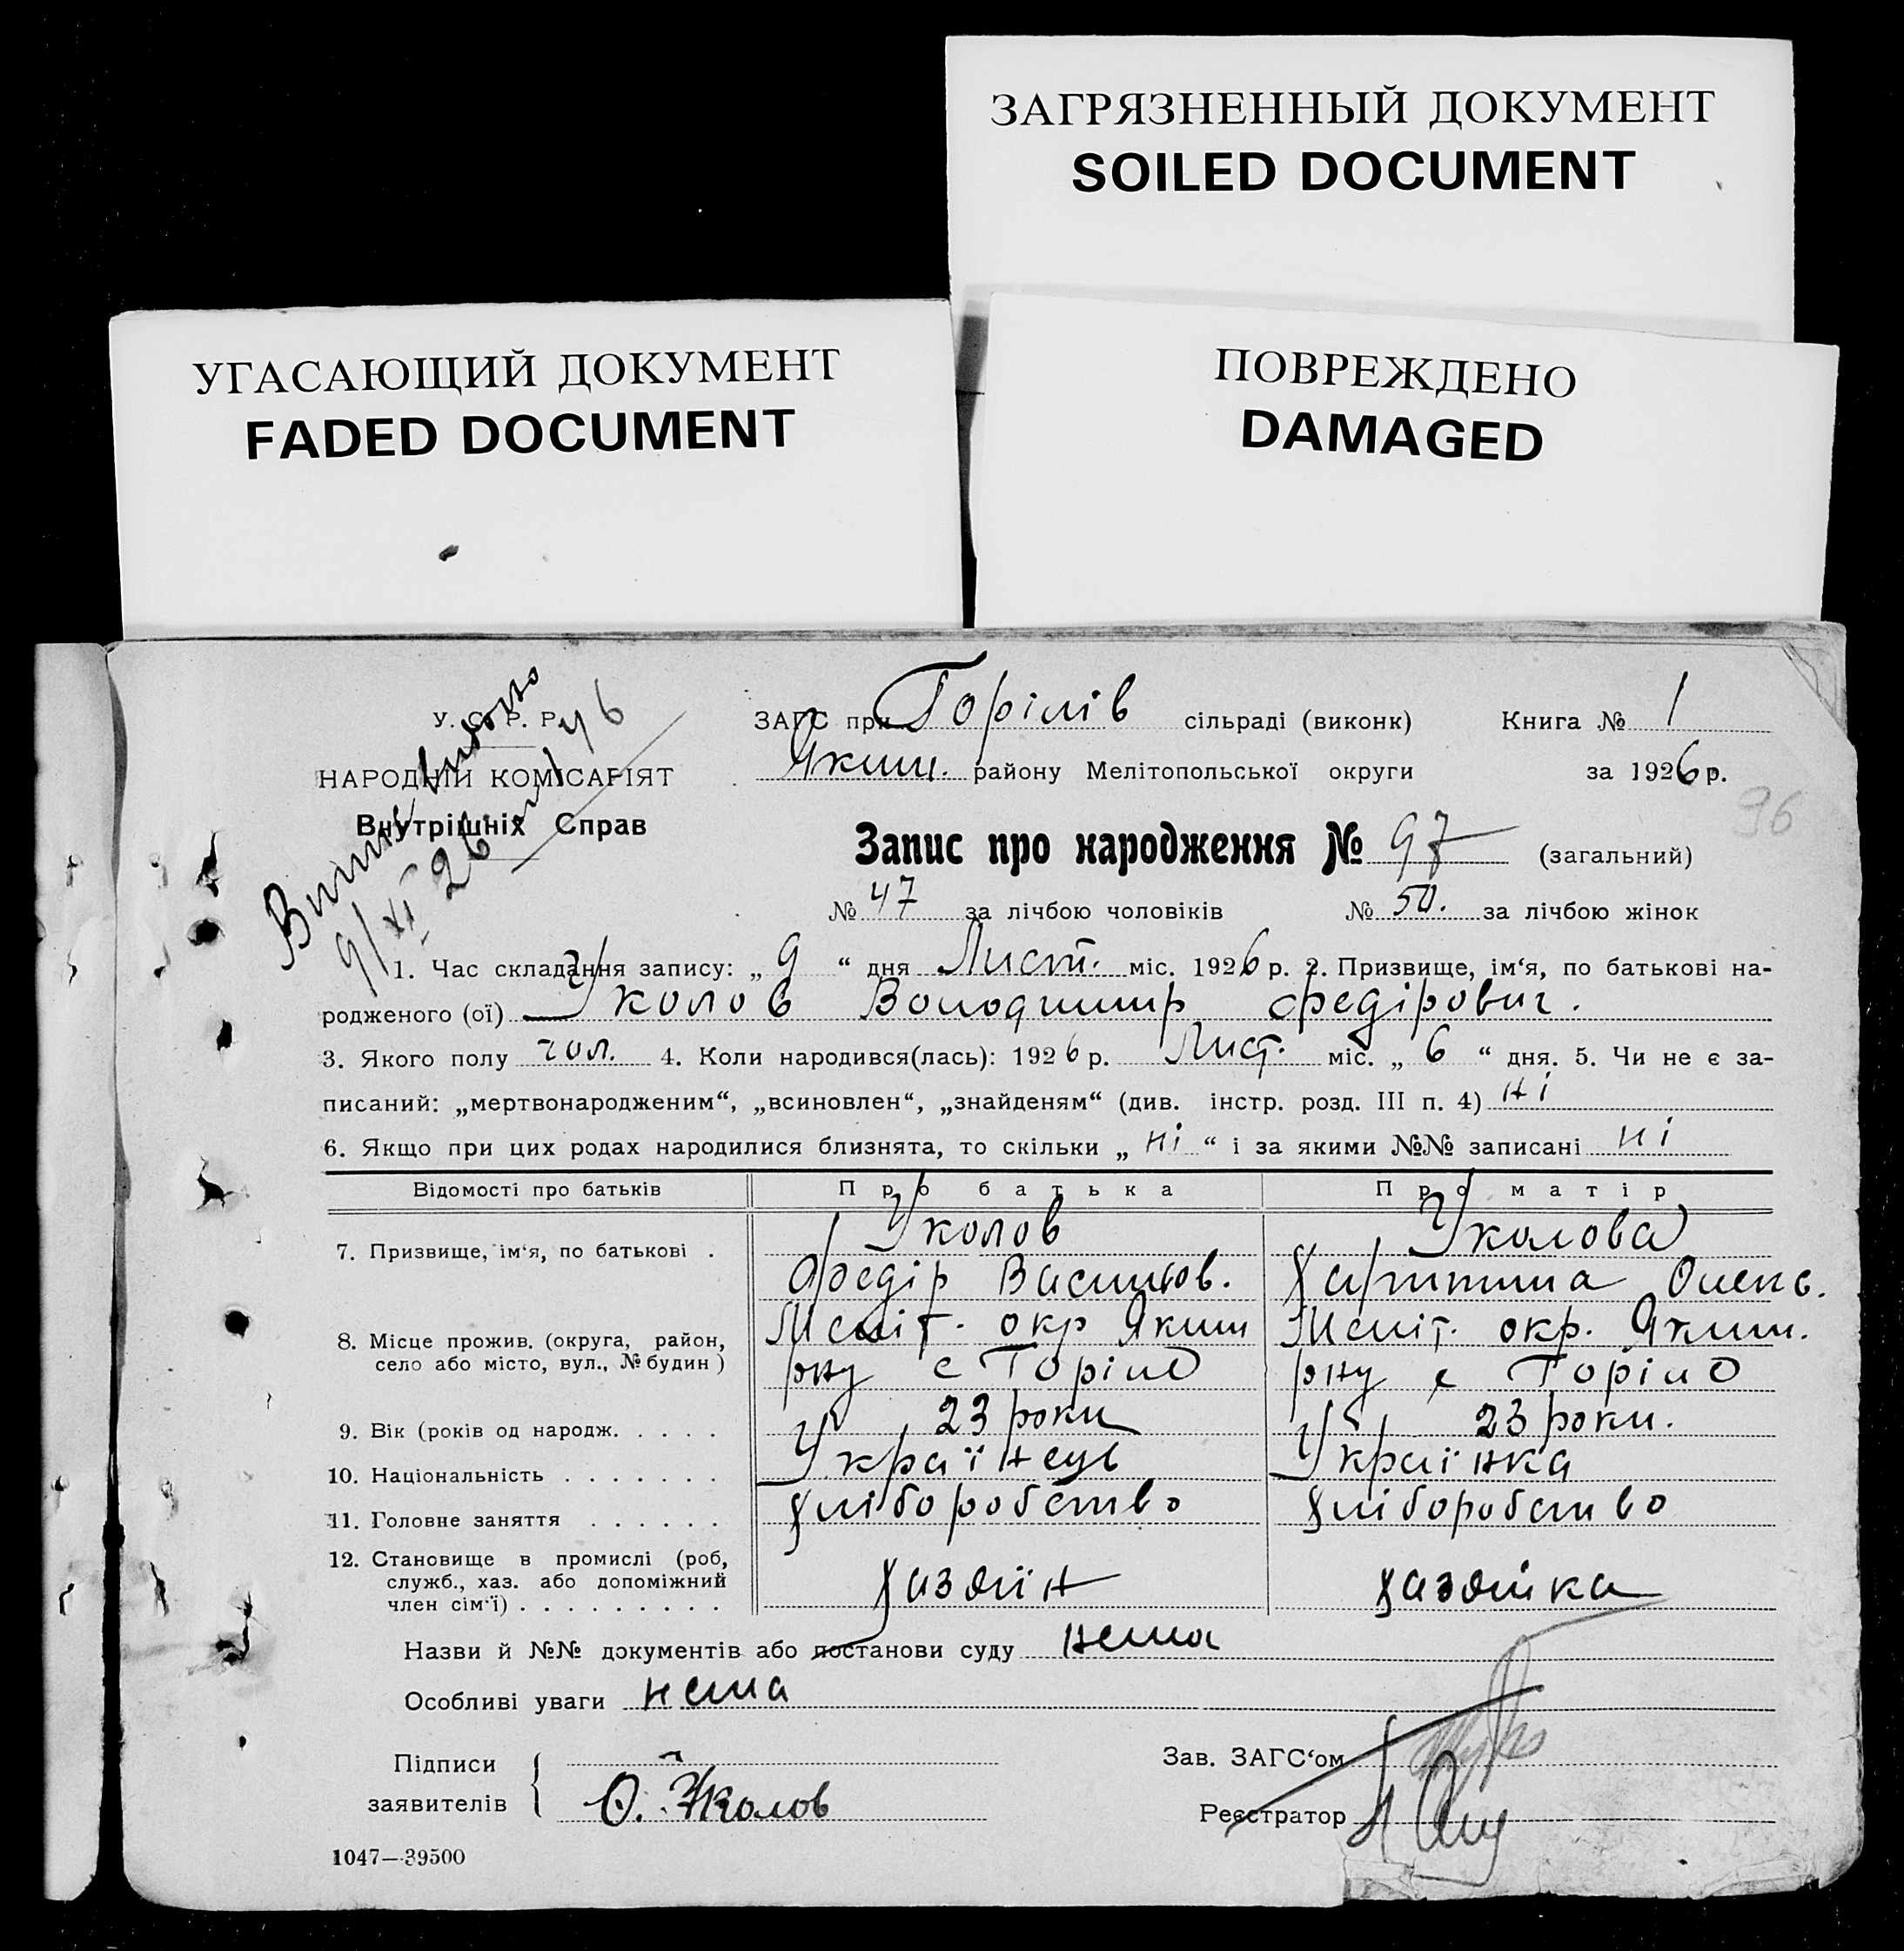 ЗАГРЯЗНЕННЫЙ ДОКУМЕНТ
SOILED DOCUMENT
УГАСАЮЩИЙ ДОКУМЕНТ
FADED DOCUMENT
ПОВРЕЖДЕНО
DAMAGED
У. С. Р. Р.
НАРОДНІЙ КОМІСАРІЯТ
Внутрішніх Справ
9/XI 26
ЗАГС при Горілів сільраді (виконк) Книга № 1
Яким. району Мелітопольської округи за 1926 р.
96
Запис про народження № 97 (загальний)
№ 47 за лічбою чоловіків № 50. за лічбою жінок
1. Час складання запису: „ 9 “ дня Лист. міс. 1926 р. 2. Призвище, ім‘я, по батькові на-
родженого (ої) Уколов Володимир Федірович.
3. Якого полу чол. 4. Коли народився(лась): 1926 р. Лист. міс. „ 6 “ дня. 5. Чи не є за-
писаний: „мертвонародженим“, „всиновлен“, „знайденям“ (див. інстр. розд. III п. 4) ні
6. Якщо при цих родах народилися близнята, то скільки „ ні “ і за якими №№ записані ні
Відомості про батьків Про батька Про матір
7. Призвище, ім‘я, по батькові . Уколов Уколова
Федір Васильов. Харитина Олекс.
8. Місце прожив. (округа, район, Меліт. окр Яким Меліт. окр. Яким.
село або місто, вул., № будин) рну с Горіло рну с Горіло
9. Вік (років од народж. . . . . 23 роки 23 роки.
10. Національність . . . . . . . Українець Українка
11. Головне заняття . . . . . . хліборобство хліборобство
12. Становище в промислі (роб,
служб., хаз. або допоміжний хазяїн хазяйка
член сім‘ї) . . . . . . . . .
Назви й №№ документів або постанови суду нема
Особливі уваги нема
Підписи Зав. ЗАГС‘ом
заявителів Ф. Уколов Реєстратор
1047—39500